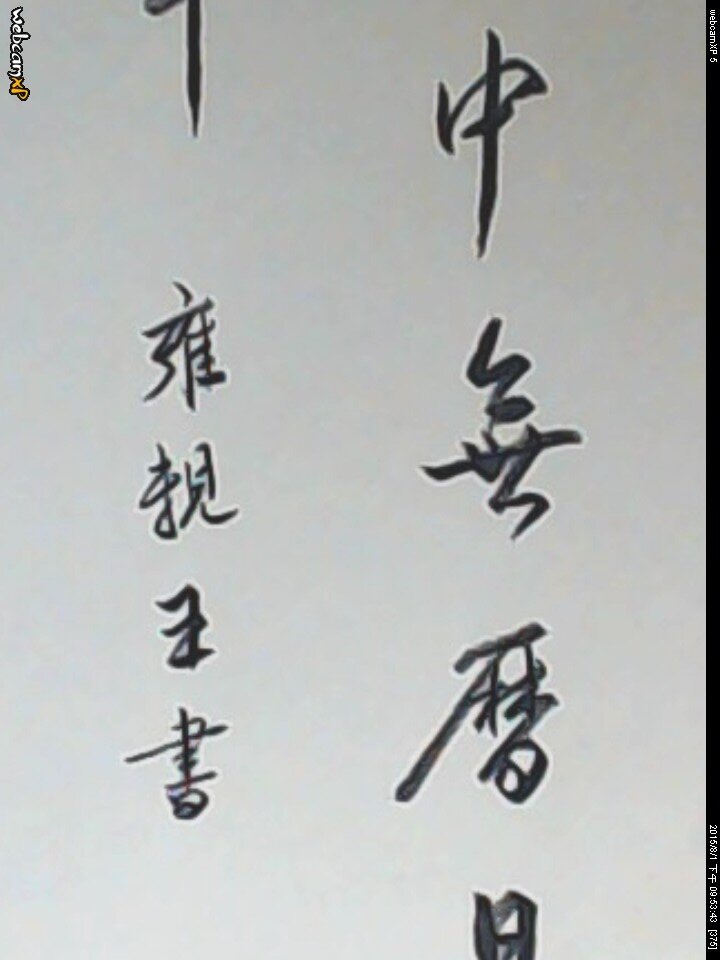 中無曆日
年
雍親王書
webcamXP
webcamXP 5
2015/8/1 下午 09:53:43 [375]